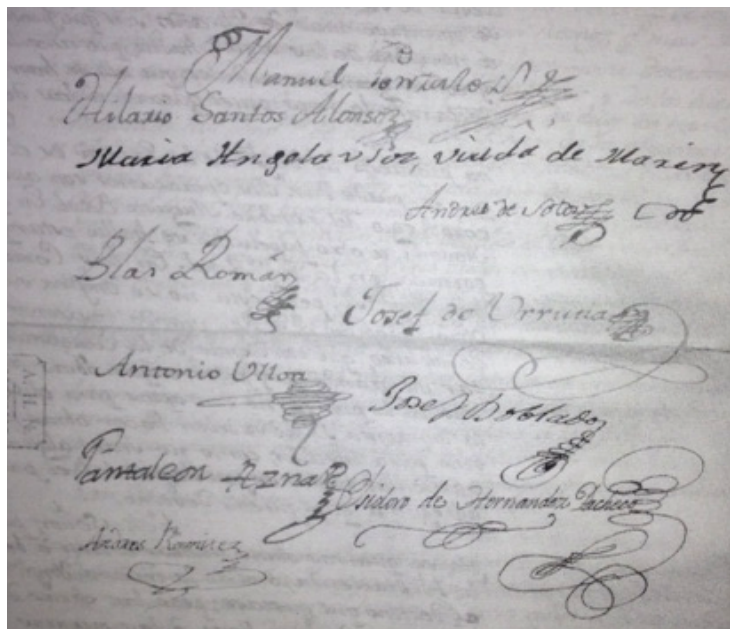 Manuel Gonzalo
Hilario Santos Alonso
Maria Angola viuda de Marin
Andres de Sotos
Blas Román
Josef de Urrutia
Antonio Ulloa
Josef Doblado
Pantaleon Aznar
Isidoro de Hernandez Pacheco
Andres Ramirez